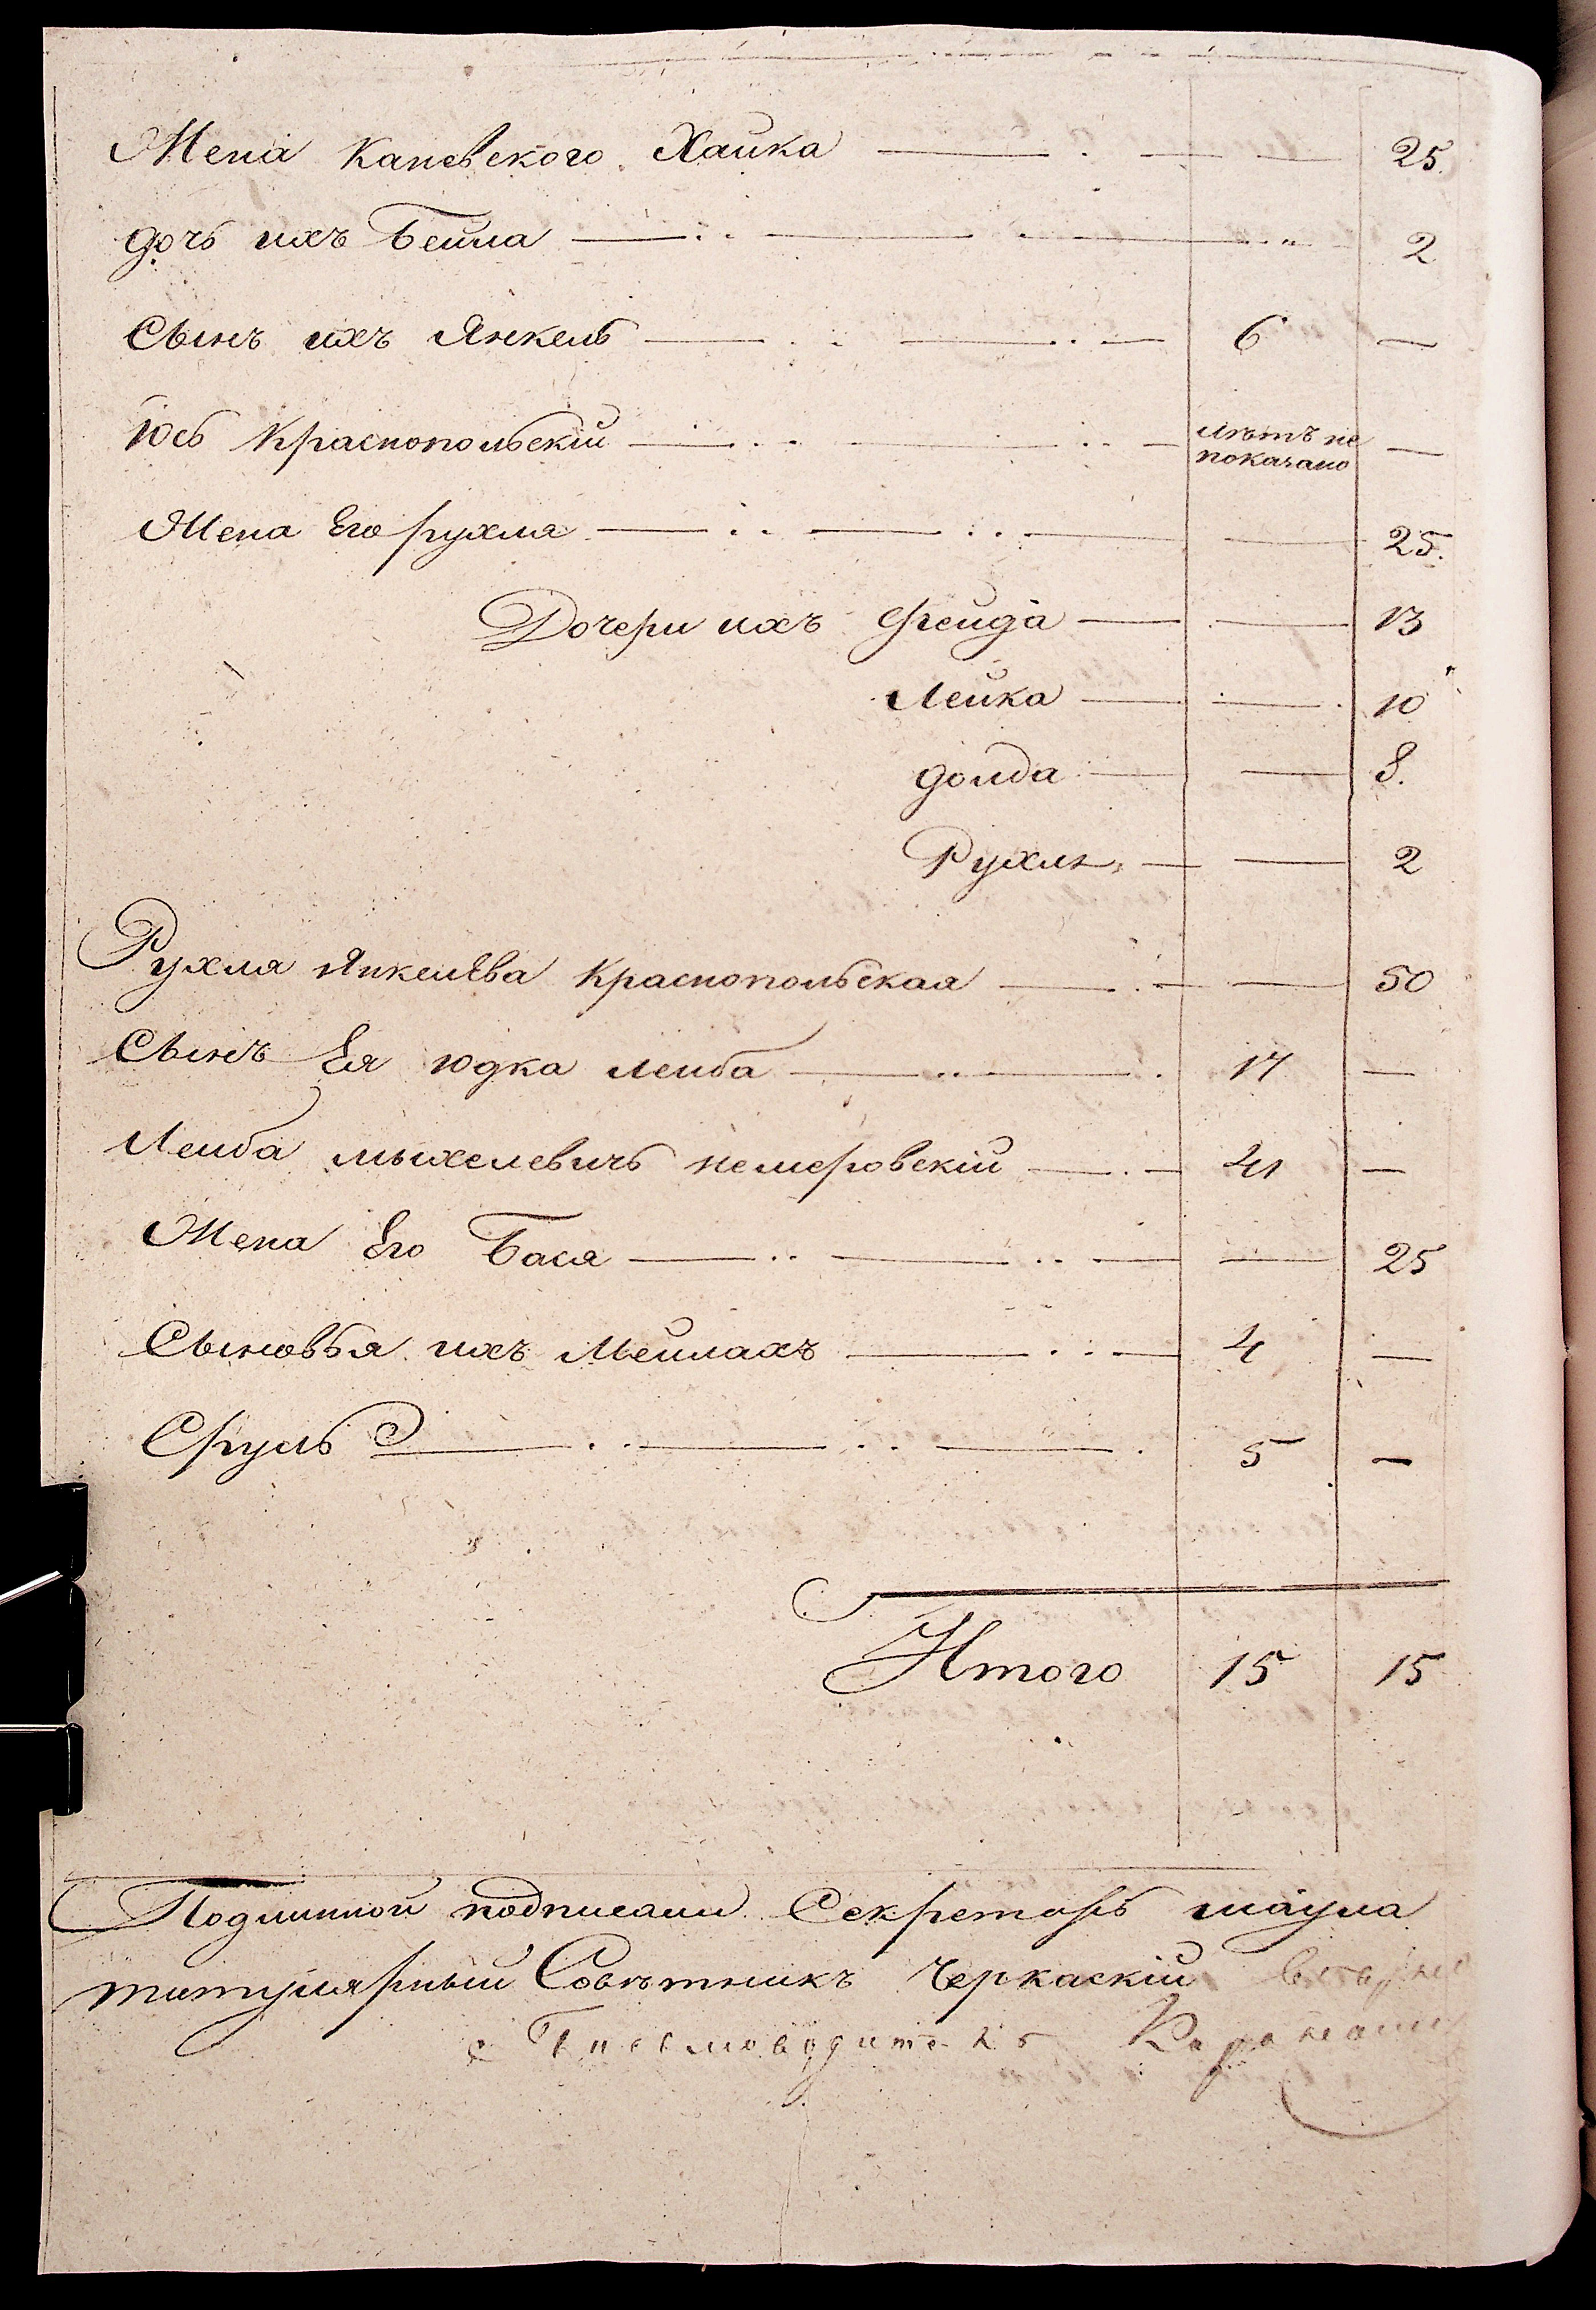 Жена Каневского Хайка 25.
дочь ихъ Бейла 2
Сынъ ихъ Янкель 6 —
Юсь Краснопольскій лѣтъ не показано —
Жена Его рухля 25.
Дочери ихъ фейда 13
Лейка 10
голда 8.
Рухля 2
Рухля Янкелѣва Краснопольская 50
Сынъ Ея юдка Лейба 17 —
Лейба мыхелевичь немеровскій 41 —
Жена Его Бася 25
Сыновья ихъ Мейлахъ 4 —
Сруль 5 —
Итого 15 15
Подлинной подписали Секретарь
титулярный Совѣтникъ Черкаскій
Письмоводитель